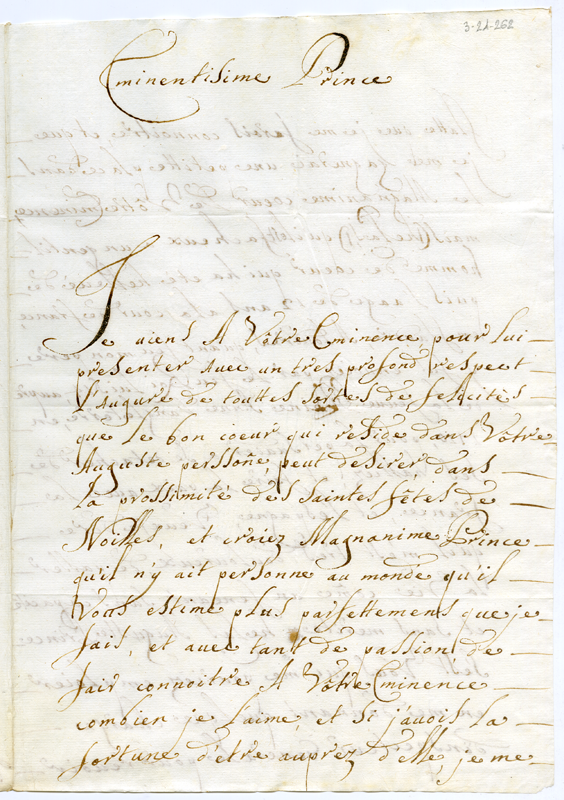 3-21-262
Eminentisime Prince
Je viens A Vôtre Eminence, pour lui
presenter avec un tres profond respect
l'augure de touttes sortes de felicités
que le bon coeur qui reside dans Vôtre
Auguste perssoñe, peut desirer dans
la prossimité des Saintes fétes de
Noilles, et croiez Magnanime Prince
qu'il n'y ait personne au monde qu'il
Vous estime plus paifettemens que je
fais, et avec tant de passion de
fair connoitre A Vôtre Eminence
combien je l'aime, et si j'avois la
fortune d'être auprez d'elle, je me